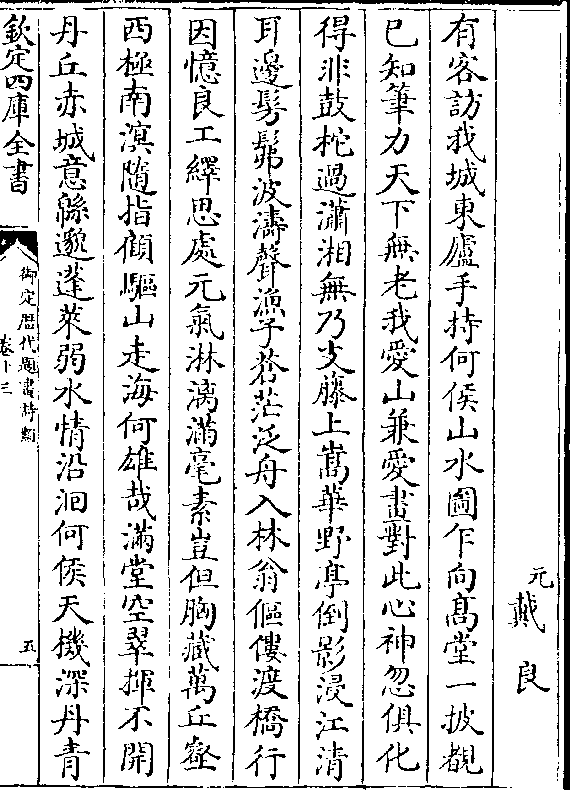 元戴良
有客訪我城東廬手持何侯山水圖乍向髙堂一披覩
已知筆力天下無老我愛山兼愛畫對此心神忽俱化
得非鼓柁過瀟湘無乃支藤上嵩華野亭倒影浸江清
耳邊髣髴波濤聲漁子蒼茫泛舟入林翁傴僂渡橋行
因憶良工繹思處元氣淋漓滿毫素豈但胸藏萬丘壑
西極南溟隨指顧驅山走海何雄哉滿堂空翠揮不開
丹丘赤城意緜邈蓬萊弱水情沿洄何侯天機深丹青
欽定四庫全書
御定歴代題畫詩類
卷十三
五